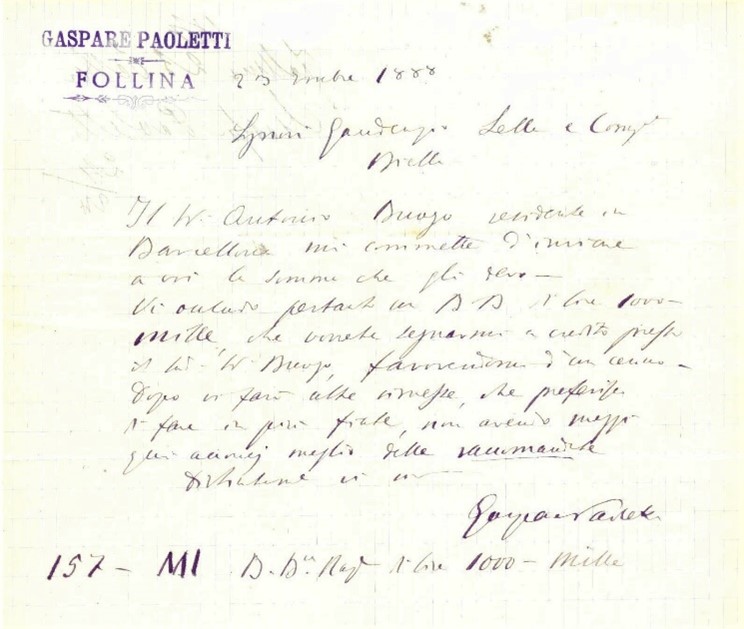 GASPARE PAOLETTI
FOLLINA
23 1888
Signori Gaudenzio Sella e Comp.
Biella
Il Sr. Antonio Buogo residente in
Barcellona mi commette d'inviare
a voi la somma che gli devo —
Vi accludo pertanto un B B di lire 1000 —
mille, che vorrete segnarmi a credito presso
il Sr. Buogo, favorendomi d'un cenno —
Dopo vi farò altre rimesse, che preferisco
di fare in più fiate, non avendo mezzi
qui meglio delle raccomandate
Gaspare Paoletti
157 — MI B. Bca. di lire 1000 — Mille